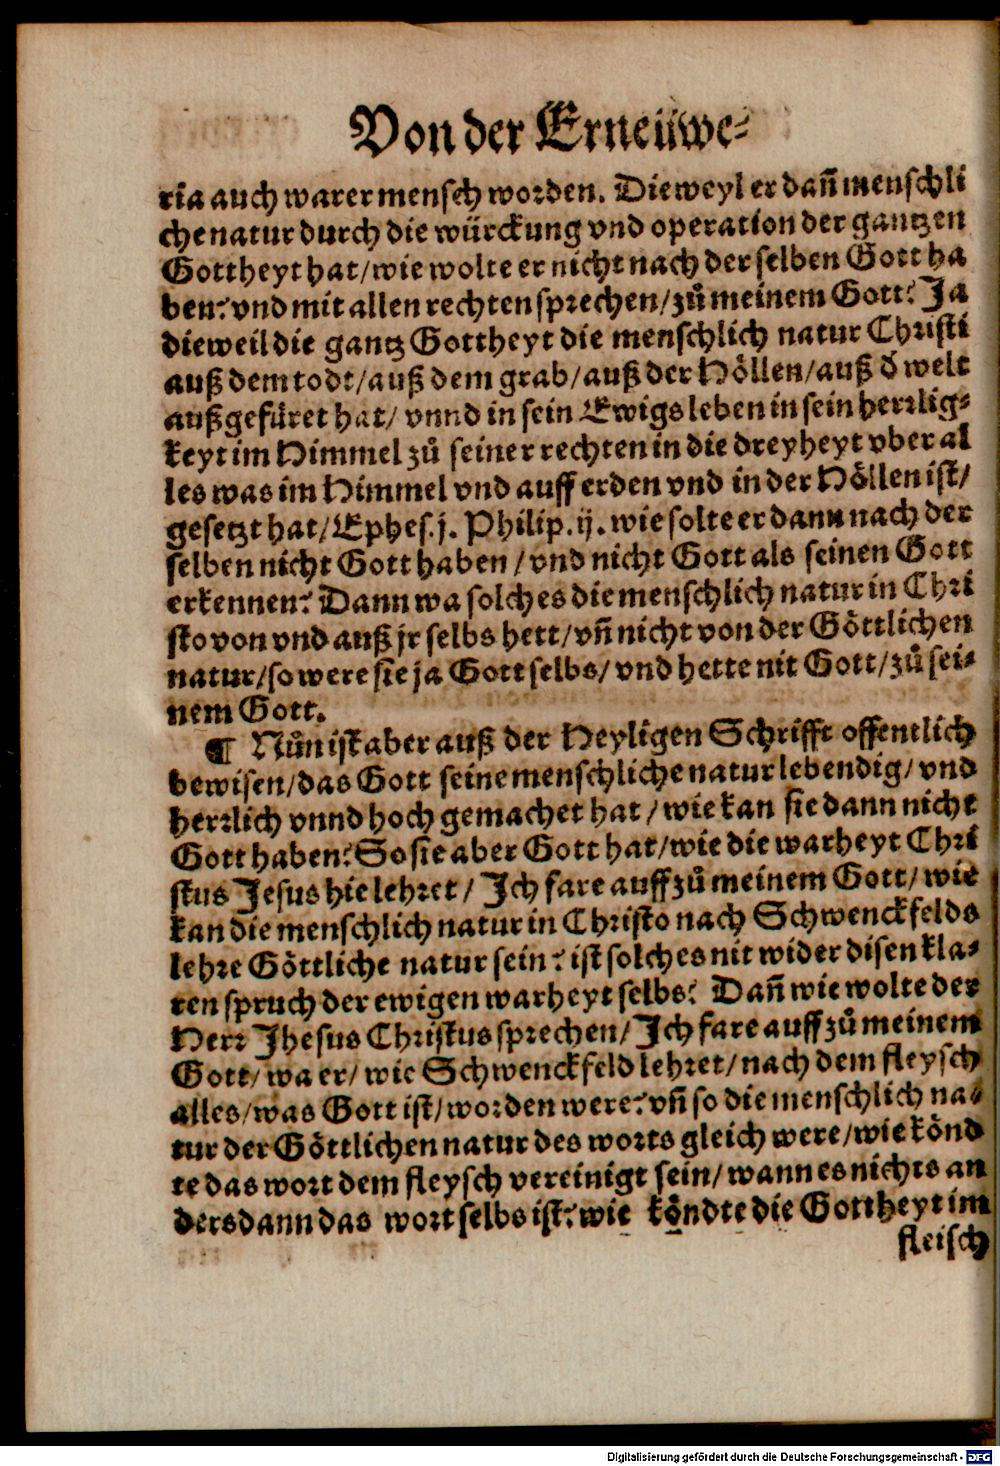 Von der Erneüwe⸗
ria auch warer mensch worden. Dieweyl er dañ menschli
che natur durch die würckung vnd operation der gantzen
Gottheyt hat/wie wolte er nicht nach der selben Gott ha
ben? vnd mit allen rechten sprechen/zů meinem Gott? Ja
dieweil die gantz Gottheyt die menschlich natur Christi
auß dem todt/auß dem grab/auß der Höllen/auß ď welt
außgefüret hat/ vnnd in sein Ewigs leben in sein herrlig⸗
keyt im Himmel zů seiner rechten in die dreyheyt vber al
les was im Himmel vnd auff erden vnd in der Höllen ist/
gesetzt hat/Ephes.j. Philip.ij. wie solte er dann nach der
selben nicht Gott haben/vnd nicht Gott als seinen Gott
erkennen? Dann wa solches die menschlich natur in Chri
sto von vnd auß jr selbs hett/vñ nicht von der Göttlichen
natur/so were sie ja Gott selbs/ vnd hette nit Gott/zů sei⸗
nem Gott.
¶ Nůn ist aber auß der Heyligen Schrifft offentlich
bewisen/das Gott seine menschliche natur lebendig/ vnd
herrlich vnnd hoch gemachet hat/wie kan sie dann nicht
Gott haben? So sie aber Gott hat/wie die warheyt Chri
stus Jesus hie lehret/ Ich fare auff zů meinem Gott/ wie
kan die menschlich natur in Christo nach Schwenckfelds
lehre Göttliche natur sein? ist solches nit wider disen kla⸗
ren spruch der ewigen warheyt selbs? Dañ wie wolte der
Herr Jhesus Christus sprechen/Ich fare auff zů meinem
Gott/wa er/wie Schwenckfeld lehret/nach dem fleysch
alles/was Gott ist/worden were? vñ so die menschlich na⸗
tur der Göttlichen natur des worts gleich were/wie könd
te das wort dem fleysch vereinigt sein/wann es nichts an
ders dann das wort selbs ist? wie köndte die Gottheyt im
fleisch
Digitalisierung gefördert durch die Deutsche Forschungsgemeinschaft - DFG